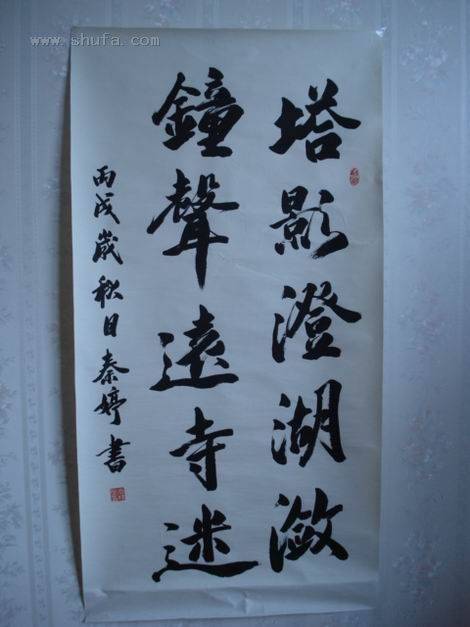 www.shufa.com
塔影澄湖潋
鐘聲遠寺迷
丙戌岁秋日秦婷書